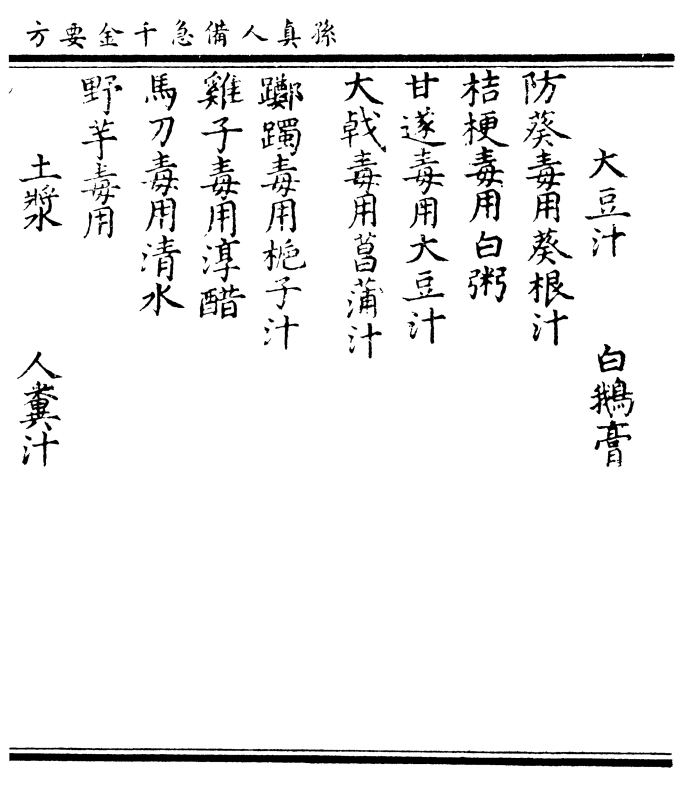 孫真人備急千金要方
大豆汁　白鵝膏
防葵毒用葵根汁
桔梗毒用白粥
甘遂毒用大豆汁
大戟毒用菖蒲汁
躑躅毒用梔子汁
雞子毒用淳醋
馬刀毒用清水
野芋毒用
土漿　人糞汁